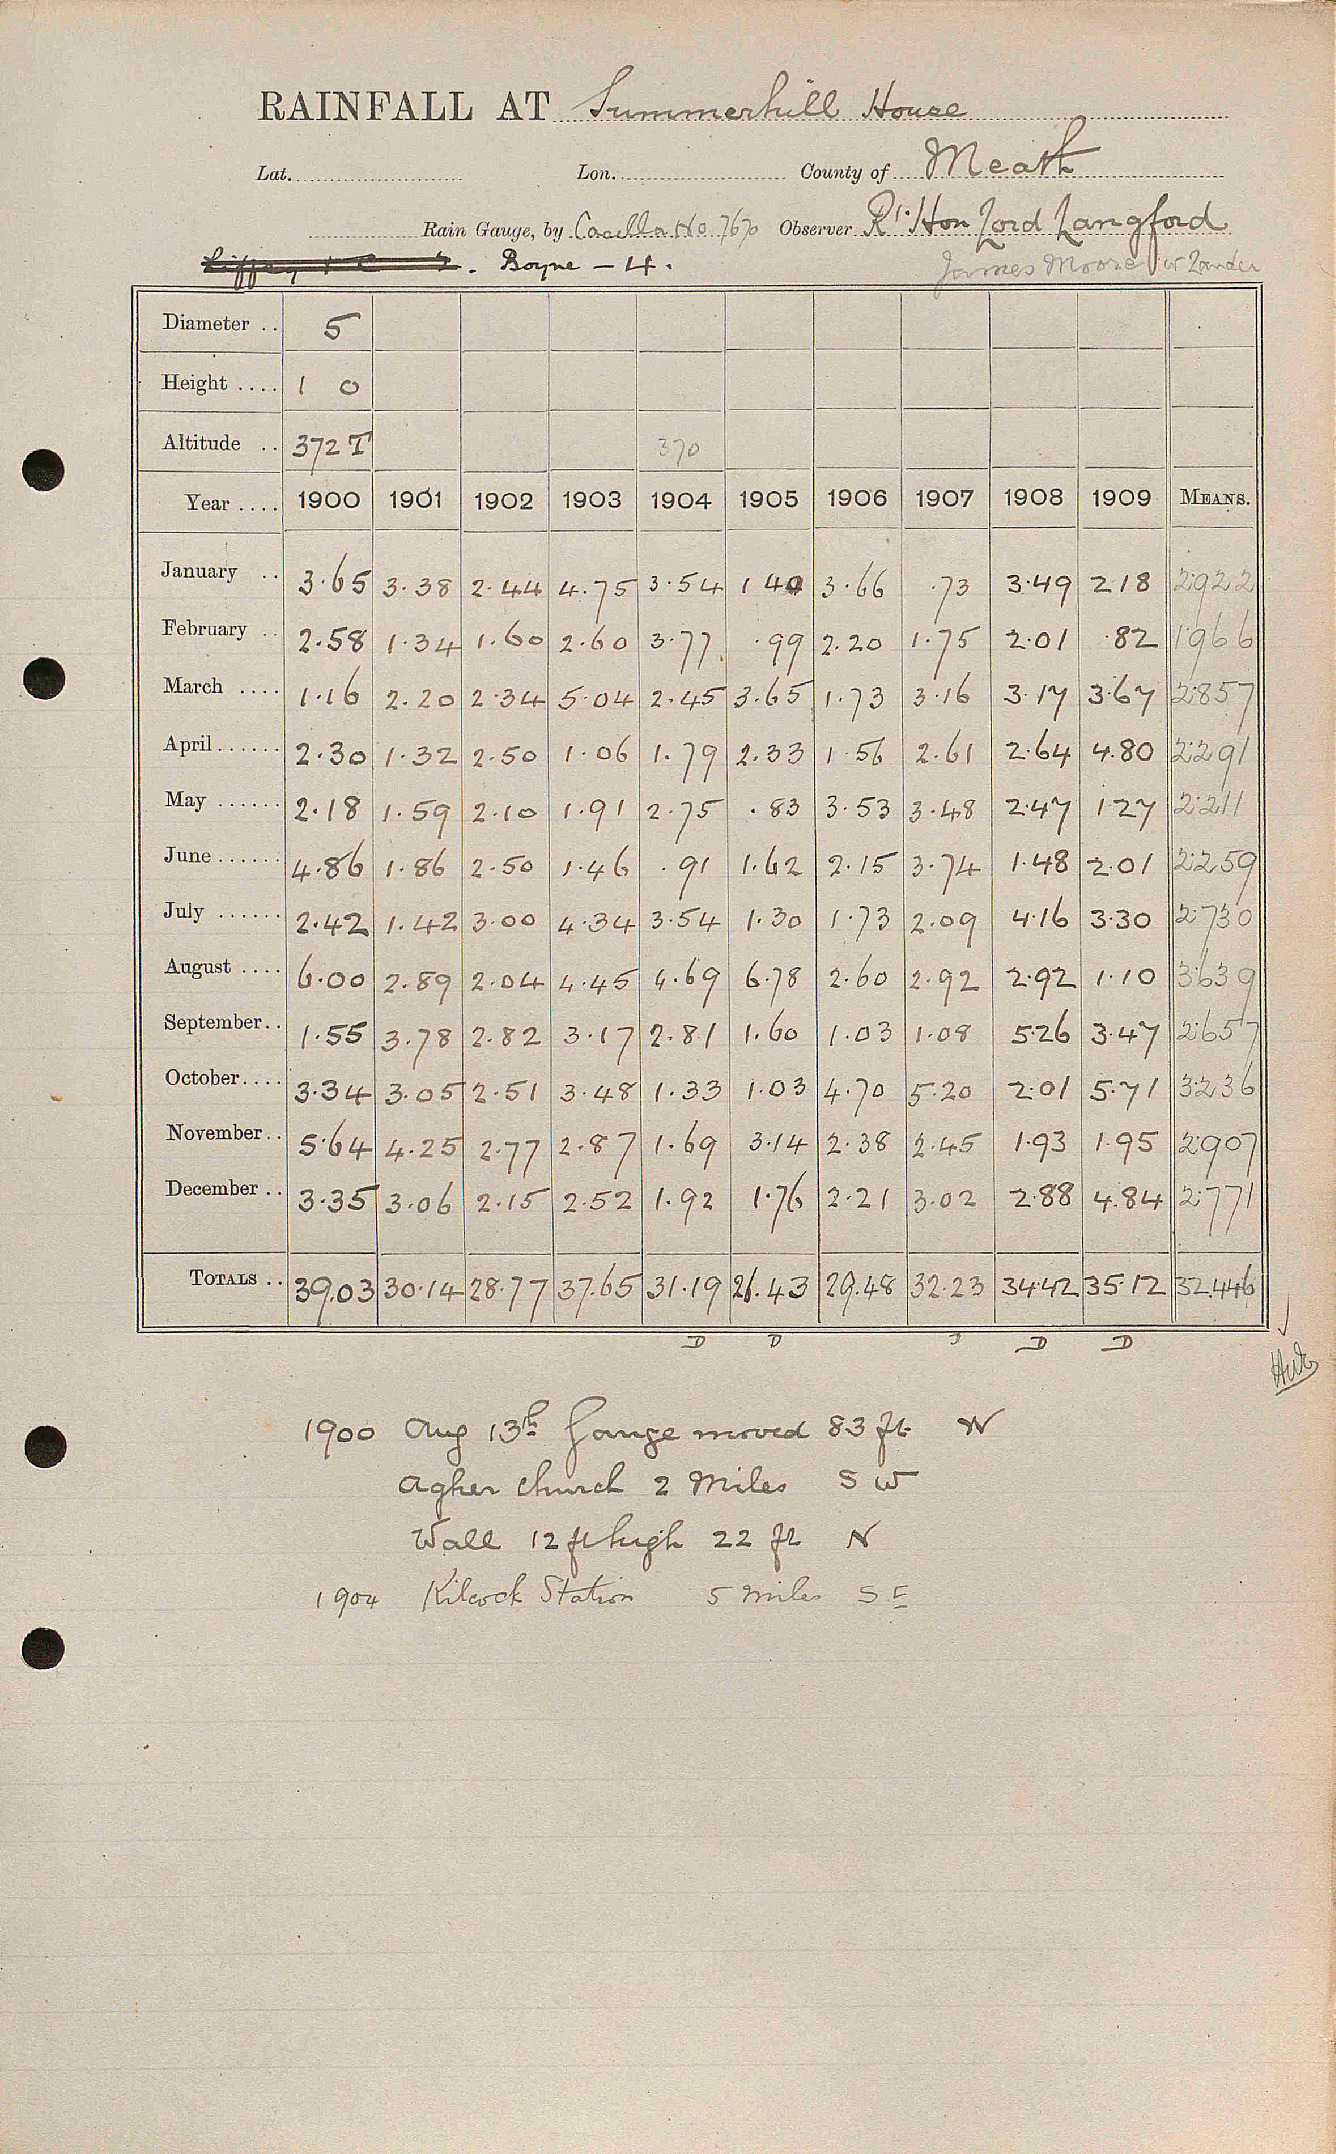 RAINFALL AT Summerhill House
Lat. Lon. County of Meath
Rain Gauge, by Casella No 7670 Observer Rt. Hon Lord Langford
Boyne – 4. James Moore
Diameter .. 5
Height .... 1 0
Altitude .. 372 T 370
Year .... 1900 1901 1902 1903 1904 1905 1906 1907 1908 1909 MEANS.
January .. 3.65 3.38 2.44 4.75 3.54 1 40 3.66 .73 3.49 2.18 2.922
February .. 2.58 1.34 1.60 2.60 3.77 .99 2.20 1.75 2.01 .82 1.966
March .... 1.16 2.20 2.34 5.04 2.45 3.65 1.73 3.16 3.17 3.67 2.857
April ...... 2.30 1.32 2.50 1.06 1.79 2.33 1.56 2.61 2.64 4.80 2.291
May ...... 2.18 1.59 2.10 1.91 2.75 .83 3.53 3.48 2.47 1.27 2.211
June ...... 4.86 1.86 2.50 1.46 .91 1.62 2.15 3.74 1.48 2.01 2.259
July ...... 2.42 1.42 3.00 4.34 3.54 1.30 1.73 2.09 4.16 3.30 2.730
August .... 6.00 2.89 2.04 4.45 4.69 6.78 2.60 2.92 2.92 1.10 3.639
September.. 1.55 3.78 2.82 3.17 2.81 1.60 1.03 1.08 5.26 3.47 2.657
October.... 3.34 3.05 2.51 3.48 1.33 1.03 4.70 5.20 2.01 5.71 3.236
November.. 5.64 4.25 2.77 2.87 1.69 3.14 2.38 2.45 1.93 1.95 2.907
December .. 3.35 3.06 2.15 2.52 1.92 1.76 2.21 3.02 2.88 4.84 2.771
TOTALS .. 39.03 30.14 28.77 37.65 31.19 26.43 29.48 32.23 34.42 35.12 32.446
D D D D
1900 Aug 13th Gauge moved 83 ft. W
Agher Church 2 Miles S W
Wall 12 ft high 22 ft N
1904 Kilcock Station 5 miles S E